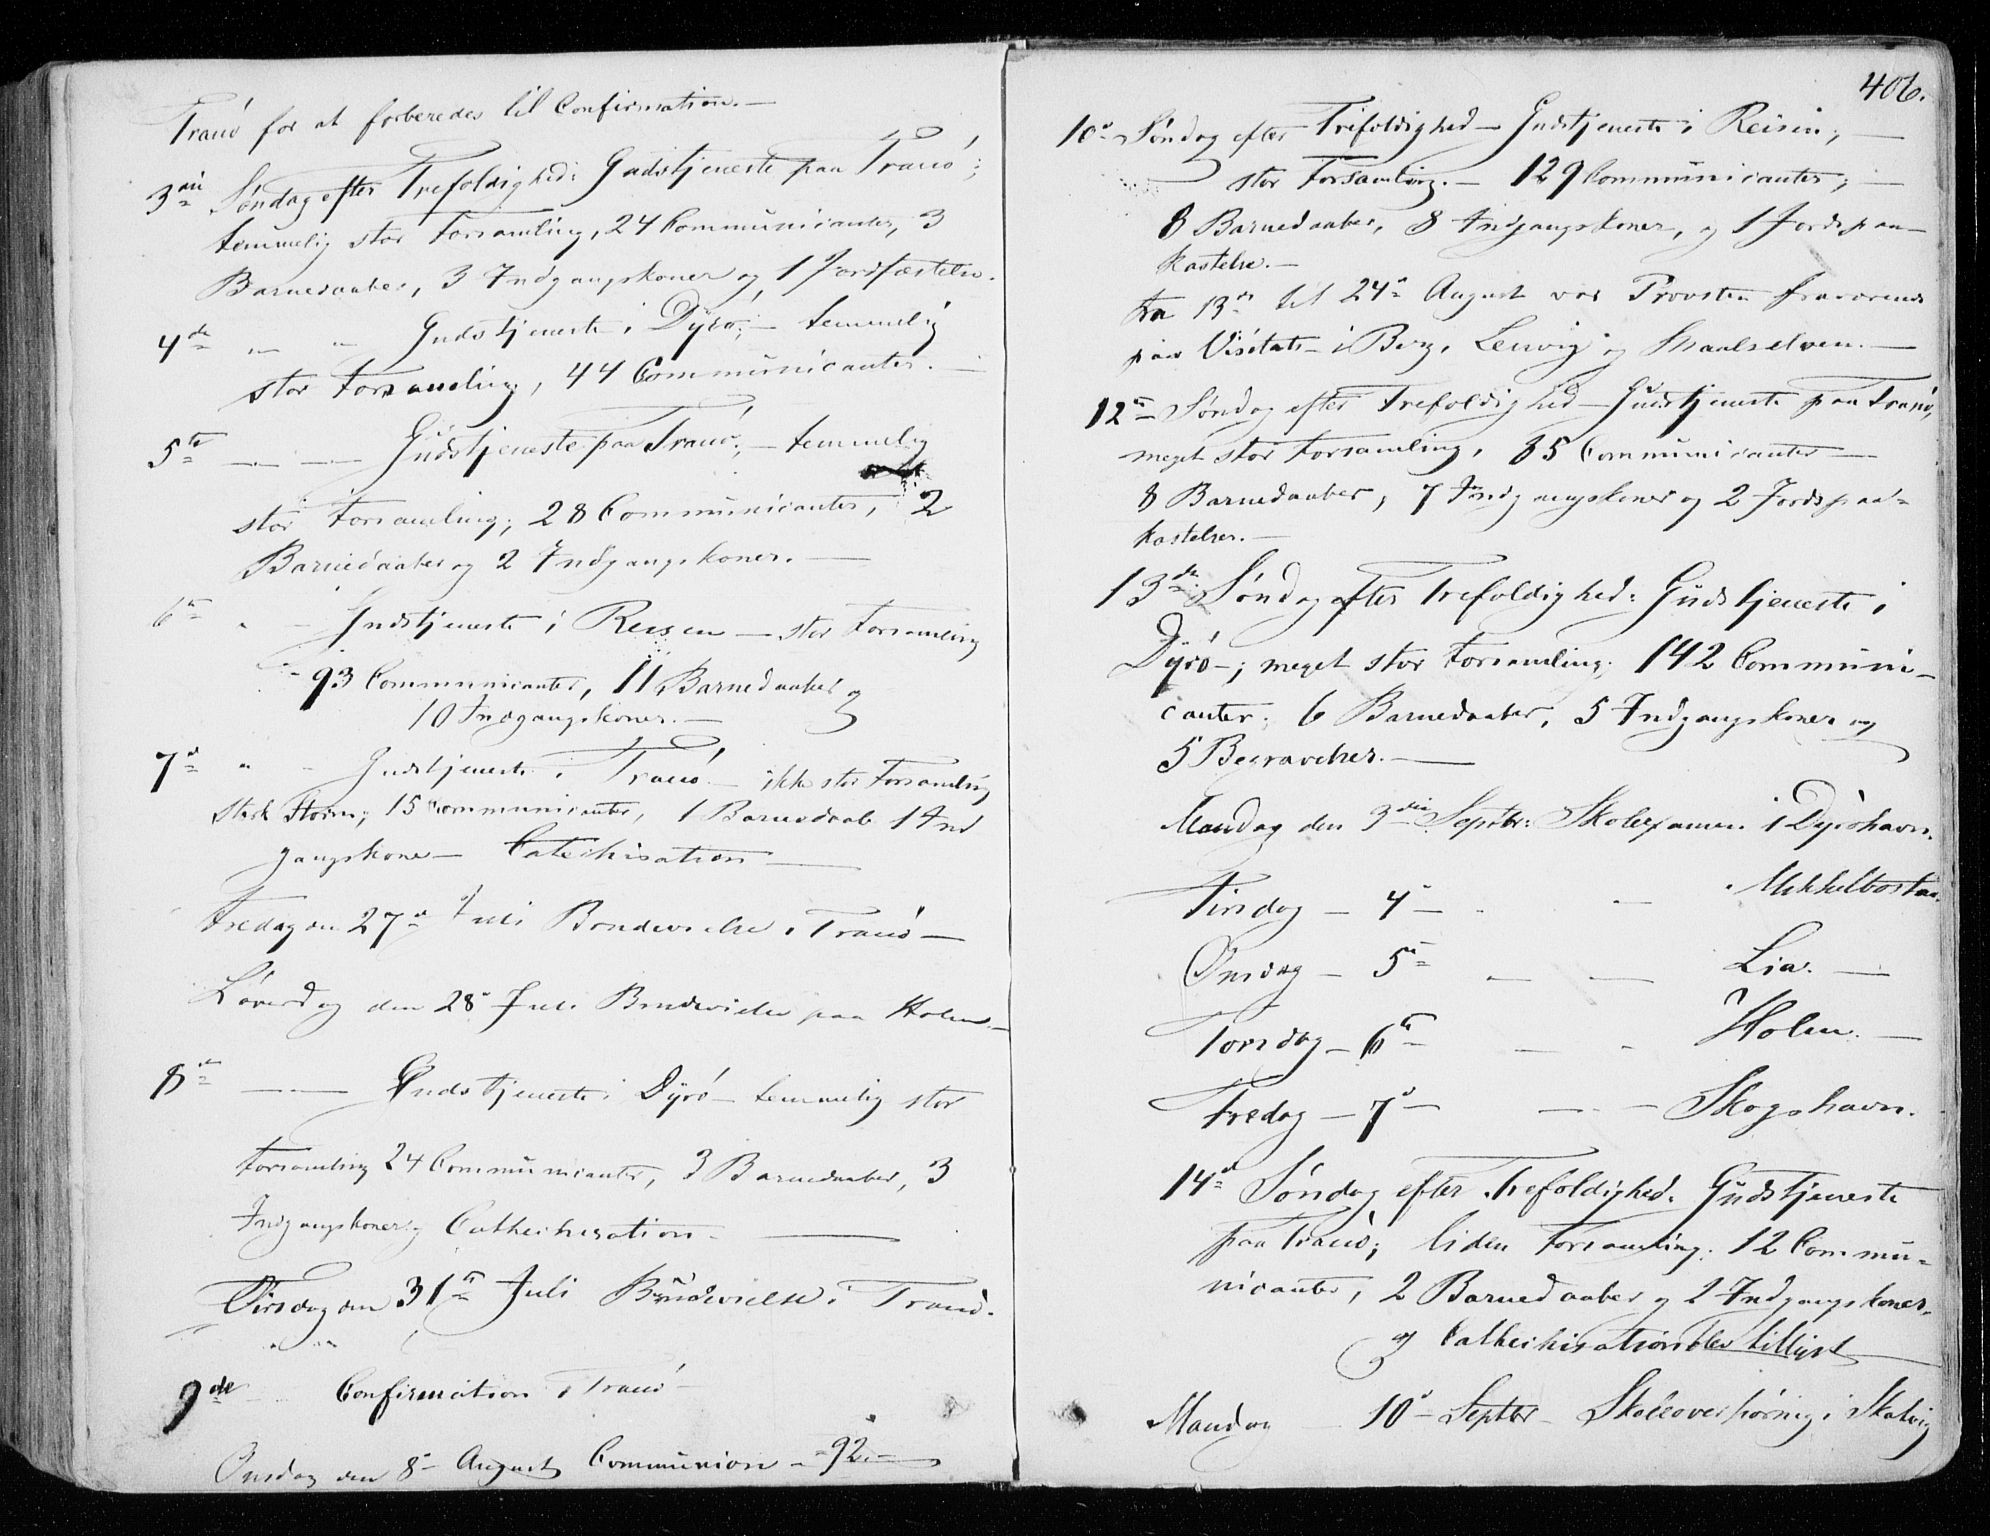 Tranø for at forberedes til Confirmation. —
3die Søndag efter Trefoldighed: Gudstjeneste paa Tranø;
temmelig stor Forsamling, 24 Communicanter, 3
Barnedaaber, 3 Indgangskoner og 1 Jordfæstelse.
4de " " Gudstjeneste i Dyrø; — temmelig
stor Forsamling, 44 Communicanter. —
5te — — Gudstjeneste paa Tranø; — temmelig
stor Forsamling; 28 Communicanter, 2
Barnedaaber og 2 Indgangskoner. —
6te " — Gudstjeneste i Reisen — stor Forsamling
93 Communicanter, 11 Barnedaaber og
10 Indgangskoner. —
7de " — Gudstjeneste i Tranø — ikke stor Forsamling
stærk Storm; 15 Communicanter, 1 Barnedaab 1 Ind
gangskone — Catechisation —
Fredag den 27de Juli Brudevielse i Tranø —
Løverdag den 28de Juli Brudevielse paa Holm —
8de — — Gudstjeneste i Dyrø — temmelig stor
Forsamling 24 Communicanter, 3 Barnedaaber, 3
Indgangskoner og Cathechisation. —
Tirsdag den 31te Juli Brudevielse i Tranø.
9de — Confirmation i Tranø —
Onsdag den 8de August Communion — 92. —
406.
10de Søndag efter Trefoldighed — Gudstjeneste i Reisen; —
stor Forsamling. — 129 Communicanter; —
8 Barnedaaber, 8 Indgangskoner, og 1 Jordspaa—
kastelse. —
Fra 13de til 24de August var Provsten fraværende
paa Visitats i Berg, Lenvig og Maalselven. —
12te Søndag efter Trefoldighed — Gudstjeneste paa Tranø,
meget stor Forsamling, 85 Communicanter —
8 Barnedaaber, 7 Indgangskoner og 2 Jordspaa=
kastelser. —
13de Søndag efter Trefoldighed: Gudstjeneste i
Dyrø —; meget stor Forsamling; 142 Communi—
canter; 6 Barnedaaber, 5 Indgangskoner og
5 Begravelser. —
Mandag den 3die Septbr: Skoleexamen i Dyrøhavn.
Tirsdag — 4de — " — Mikkelbostad.
Onsdag — 5te — — Lia. —
Torsdag — 6te — — Holm. —
Fredag — 7de — — Skogshavn.
14de Søndag efter Trefoldighed: Gudstjeneste
paa Tranø; liden Forsamling; 12 Commu—
nicanter, 2 Barnedaaber og 2 Indgangskoner.
og Cathechisation blev tillyst —
Mandag — 10de Septbr — Skoleoverhøring i Skatvig